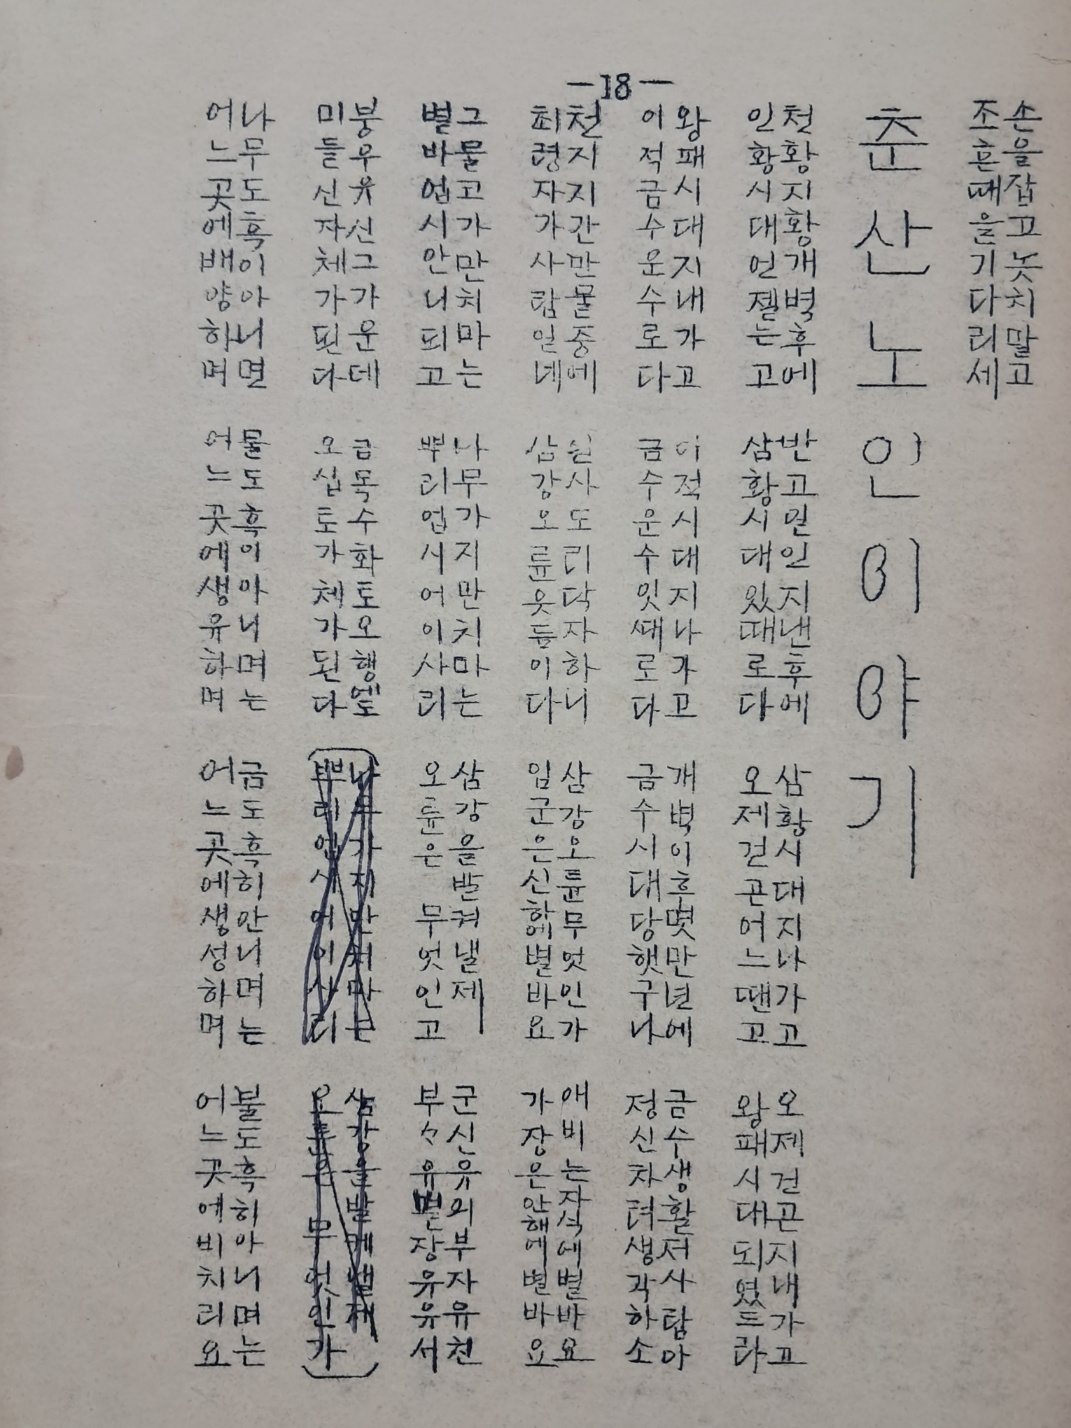 -18-
손을잡고놋치말고
조흔때을기다리세
춘산노인이야기
천황지황개벽후에
인황시대언젤는고
반고인일지낸후에
삼황시대있때로다
삼황시대지나가고
오제건곤어느땐고
오제건곤지내가고
왕패시대되였드라
왕패시대지내가고
이적금수운수로다
이적시대지나가고
금수운수잇때로다
개벽이후몃만년에
금수시대당햇구나
금수생활저사탐아
정신차려생각하소
천지지간만물중에
최령자가사람일네
원사도리닥자하니
삼강오륜웃듬이다
삼강오륜무엇인가
임군은신하에별바요
애비는자식에별바요
가장은안해에별바요
그물고가만치마는
별바업시안니되고
나무가지만치마는
뿌리업시어이사리
삼강을발켜낼제
오륜은 무엇인고
군신유의부자유천
부々유별장유유서
붕우유신그가운데
미들신자체가된다
금목수화토오행엘도
오십토가체가된다
나무가지만치마는
뿌리업시어이사리
삼강을발케낼제
오륜은 무엇인가
나무도흑이아니면
어느곳에배양하며
물도흑이아니며는
어느곳에생유하며
금도흑히안니며는
어느곳에생성하며
불도흑히아니며는
어느곳에비치리요